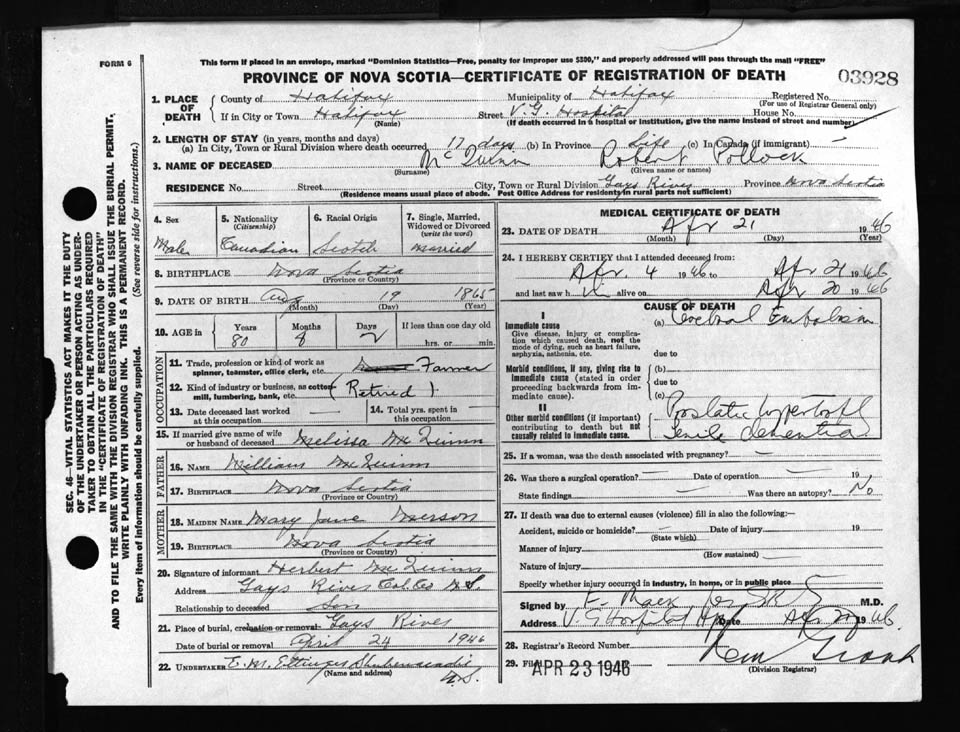 FORM 6
This form if placed in an envelope, marked "Dominion Statistics—Free, penalty for improper use $300," and properly addressed will pass through the mail "FREE"
PROVINCE OF NOVA SCOTIA—CERTIFICATE OF REGISTRATION OF DEATH
03928
1. PLACE OF DEATH
County of Halifax Municipality of Halifax Registered No.
(For use of Registrar General only)
If in City or Town Halifax Street V.G. Hospital House No.
(Name) (If death occurred in a hospital or institution, give the name instead of street and number)
2. LENGTH OF STAY (in years, months and days)
(a) In City, Town or Rural Division where death occurred 17 days (b) In Province Life (c) In Canada (if immigrant) —
3. NAME OF DECEASED McQuinn Robert Pollock
(Surname) (Given name or names)
RESIDENCE No. Street City, Town or Rural Division Gays River Province Nova Scotia
(Residence means usual place of abode. Post Office Address for residents in rural parts not sufficient)
4. Sex
Male
5. Nationality
(Citizenship)
Canadian
6. Racial Origin
Scotch
7. Single, Married, Widowed or Divorced
(write the word)
Married
8. BIRTHPLACE Nova Scotia
(Province or Country)
9. DATE OF BIRTH Aug 19 1865
(Month) (Day) (Year)
10. AGE in Years Months Days If less than one day old
80 8 2 hrs. or min.
OCCUPATION
11. Trade, profession or kind of work as spinner, teamster, office clerk, etc. Farmer
12. Kind of industry or business, as cotton mill, lumbering, bank, etc. (Retired)
13. Date deceased last worked at this occupation
14. Total yrs. spent in this occupation
15. If married give name of wife or husband of deceased Melissa McQuinn
FATHER
16. NAME William McQuinn
17. BIRTHPLACE Nova Scotia
(Province or Country)
MOTHER
18. MAIDEN NAME Mary Jane
19. BIRTHPLACE Nova Scotia
(Province or Country)
20. Signature of informant Herbert McQuinn
Address Gays River Col. Co N.S.
Relationship to deceased Son
21. Place of burial, cremation or removal Gays River
Date of burial or removal April 24 1946
22. UNDERTAKER E. M. Ettinger Shubenacadie
(Name and address) N.S.
MEDICAL CERTIFICATE OF DEATH
23. DATE OF DEATH Apr 21 1946
(Month) (Day) (Year)
24. I HEREBY CERTIFY that I attended deceased from:
Apr. 4 1946 to Apr 21 1946
and last saw him alive on Apr 20 1946
CAUSE OF DEATH
I
Immediate cause
Give disease, injury or complication which caused death, not the mode of dying, such as heart failure, asphyxia, asthenia, etc.
(a) Cerebral Embolism
due to
Morbid conditions, if any, giving rise to immediate cause (stated in order proceeding backwards from immediate cause).
(b)
due to
(c)
II
Other morbid conditions (if important) contributing to death but not causally related to immediate cause.
Prostatic hypertrophy
Senile dementia
25. If a woman, was the death associated with pregnancy? —
26. Was there a surgical operation? — Date of operation — 19
State findings — Was there an autopsy? No
27. If death was due to external causes (violence) fill in also the following:
Accident, suicide or homicide? — Date of injury 19
(State which)
Manner of injury
(How sustained)
Nature of injury
Specify whether injury occurred in industry, in home, or in public place
Signed by M.D.
Address V. G Hospital Date Apr 1946.
28. Registrar's Record Number
29. Filed APR 23 1946
(Division Registrar)
SEC. 46—VITAL STATISTICS ACT MAKES IT THE DUTY
OF THE UNDERTAKER OR PERSON ACTING AS UNDER-
TAKER TO OBTAIN ALL THE PARTICULARS REQUIRED
IN THE "CERTIFICATE OF REGISTRATION OF DEATH"
AND TO FILE THE SAME WITH THE DIVISION REGISTRAR WHO SHALL ISSUE THE BURIAL PERMIT.
WRITE PLAINLY WITH UNFADING INK. THIS IS A PERMANENT RECORD.
Every item of information should be carefully supplied. (See reverse side for instructions.)